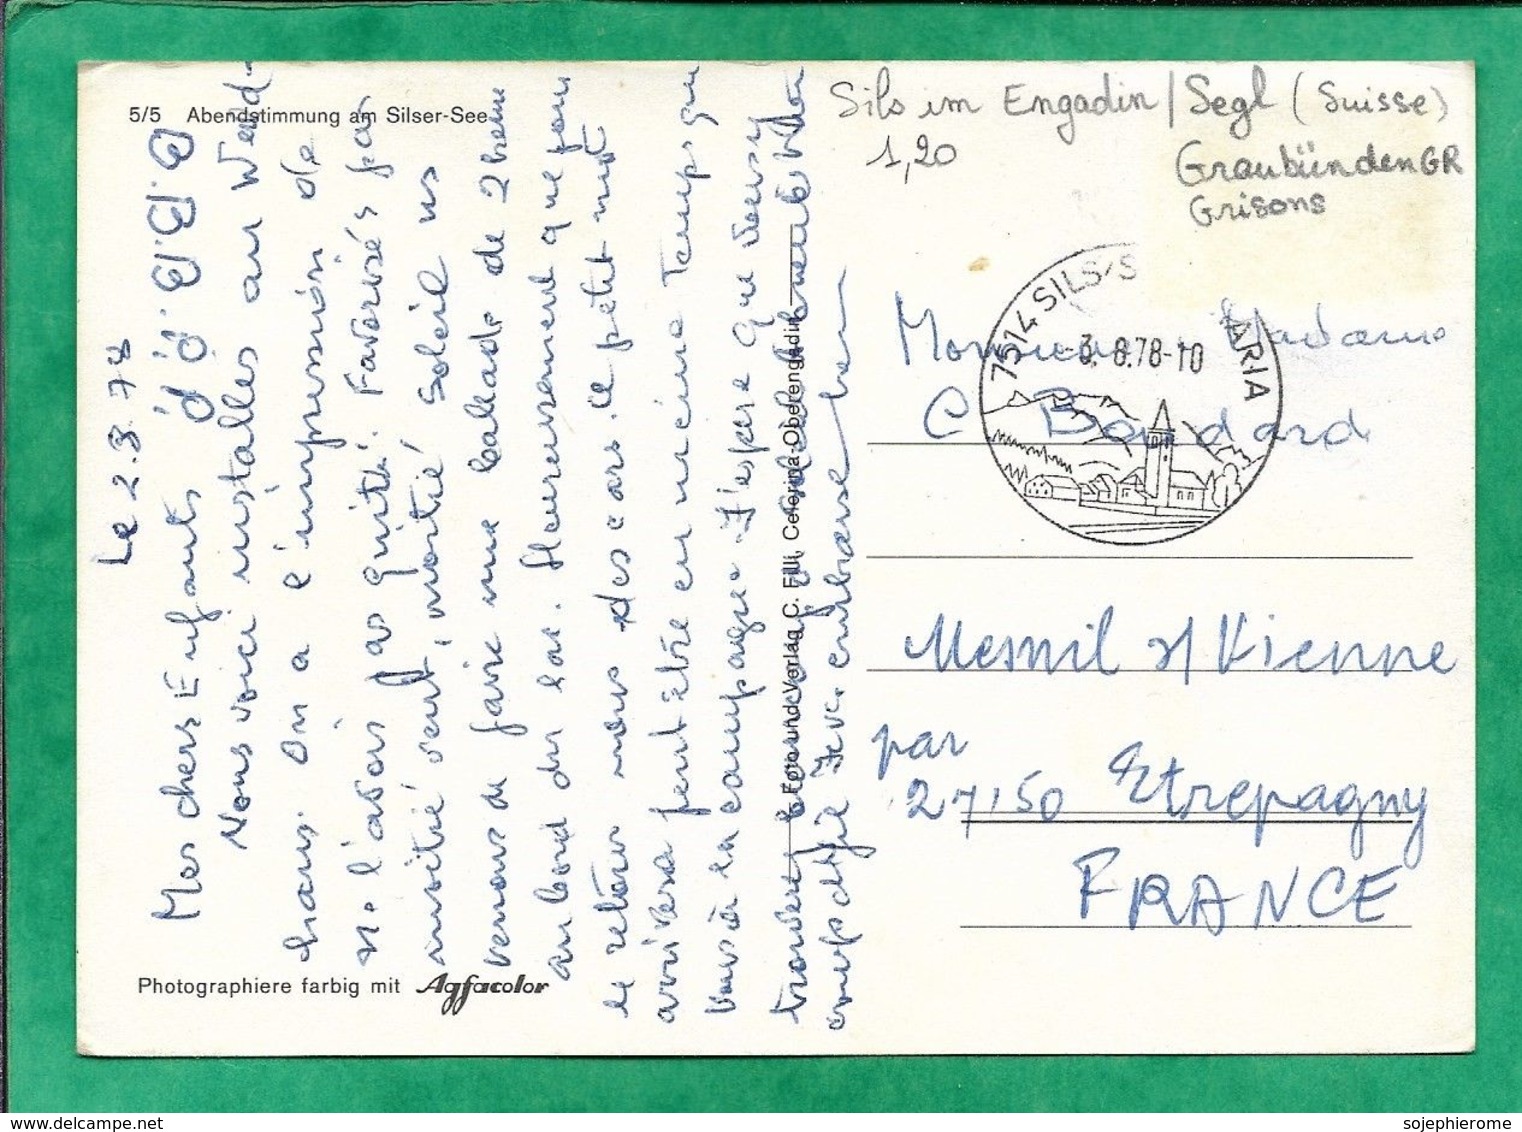 5/5 Abendstimmung am Silser-See
Le 2.8.78
Mes chers Enfants
Nous voici installés au Wald-
haus. On a l'impression de
n. l'avoir pas quitté. Favorisés par
moitié vent, moitié soleil ns
venons de faire une ballade de 2 heures
au bord du lac. Heureusement que pour
le retour nous des cars. Le petit mot
arrivera peut être en même temps que
vous à la campagne. J'espère que vous y
trouverez
Je vs embrasse
Photographiere farbig mit Agfacolor
Foto und Verlag C. Filli, Celerina-Oberengadin
Sils im Engadin / Segl (Suisse)
1,20
Graubünden GR
Grisons
7514 SILS/S ARIA
-3. 8.78-10
Monsieur Madame
C
Mesnil s/ Vienne
par
27150 Etrepagny
FRANCE
sojephierome